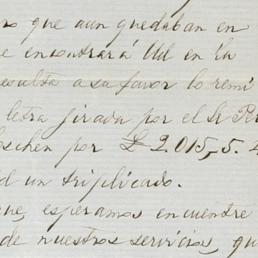 que aun quedaban en
encontrará Ud en la
resulta a su favor lo remi
letra girada por el Sr Per
schen por £ 2.015,5.
un triplicado.
que esperamos encuentre
de nuestros servicios, qu